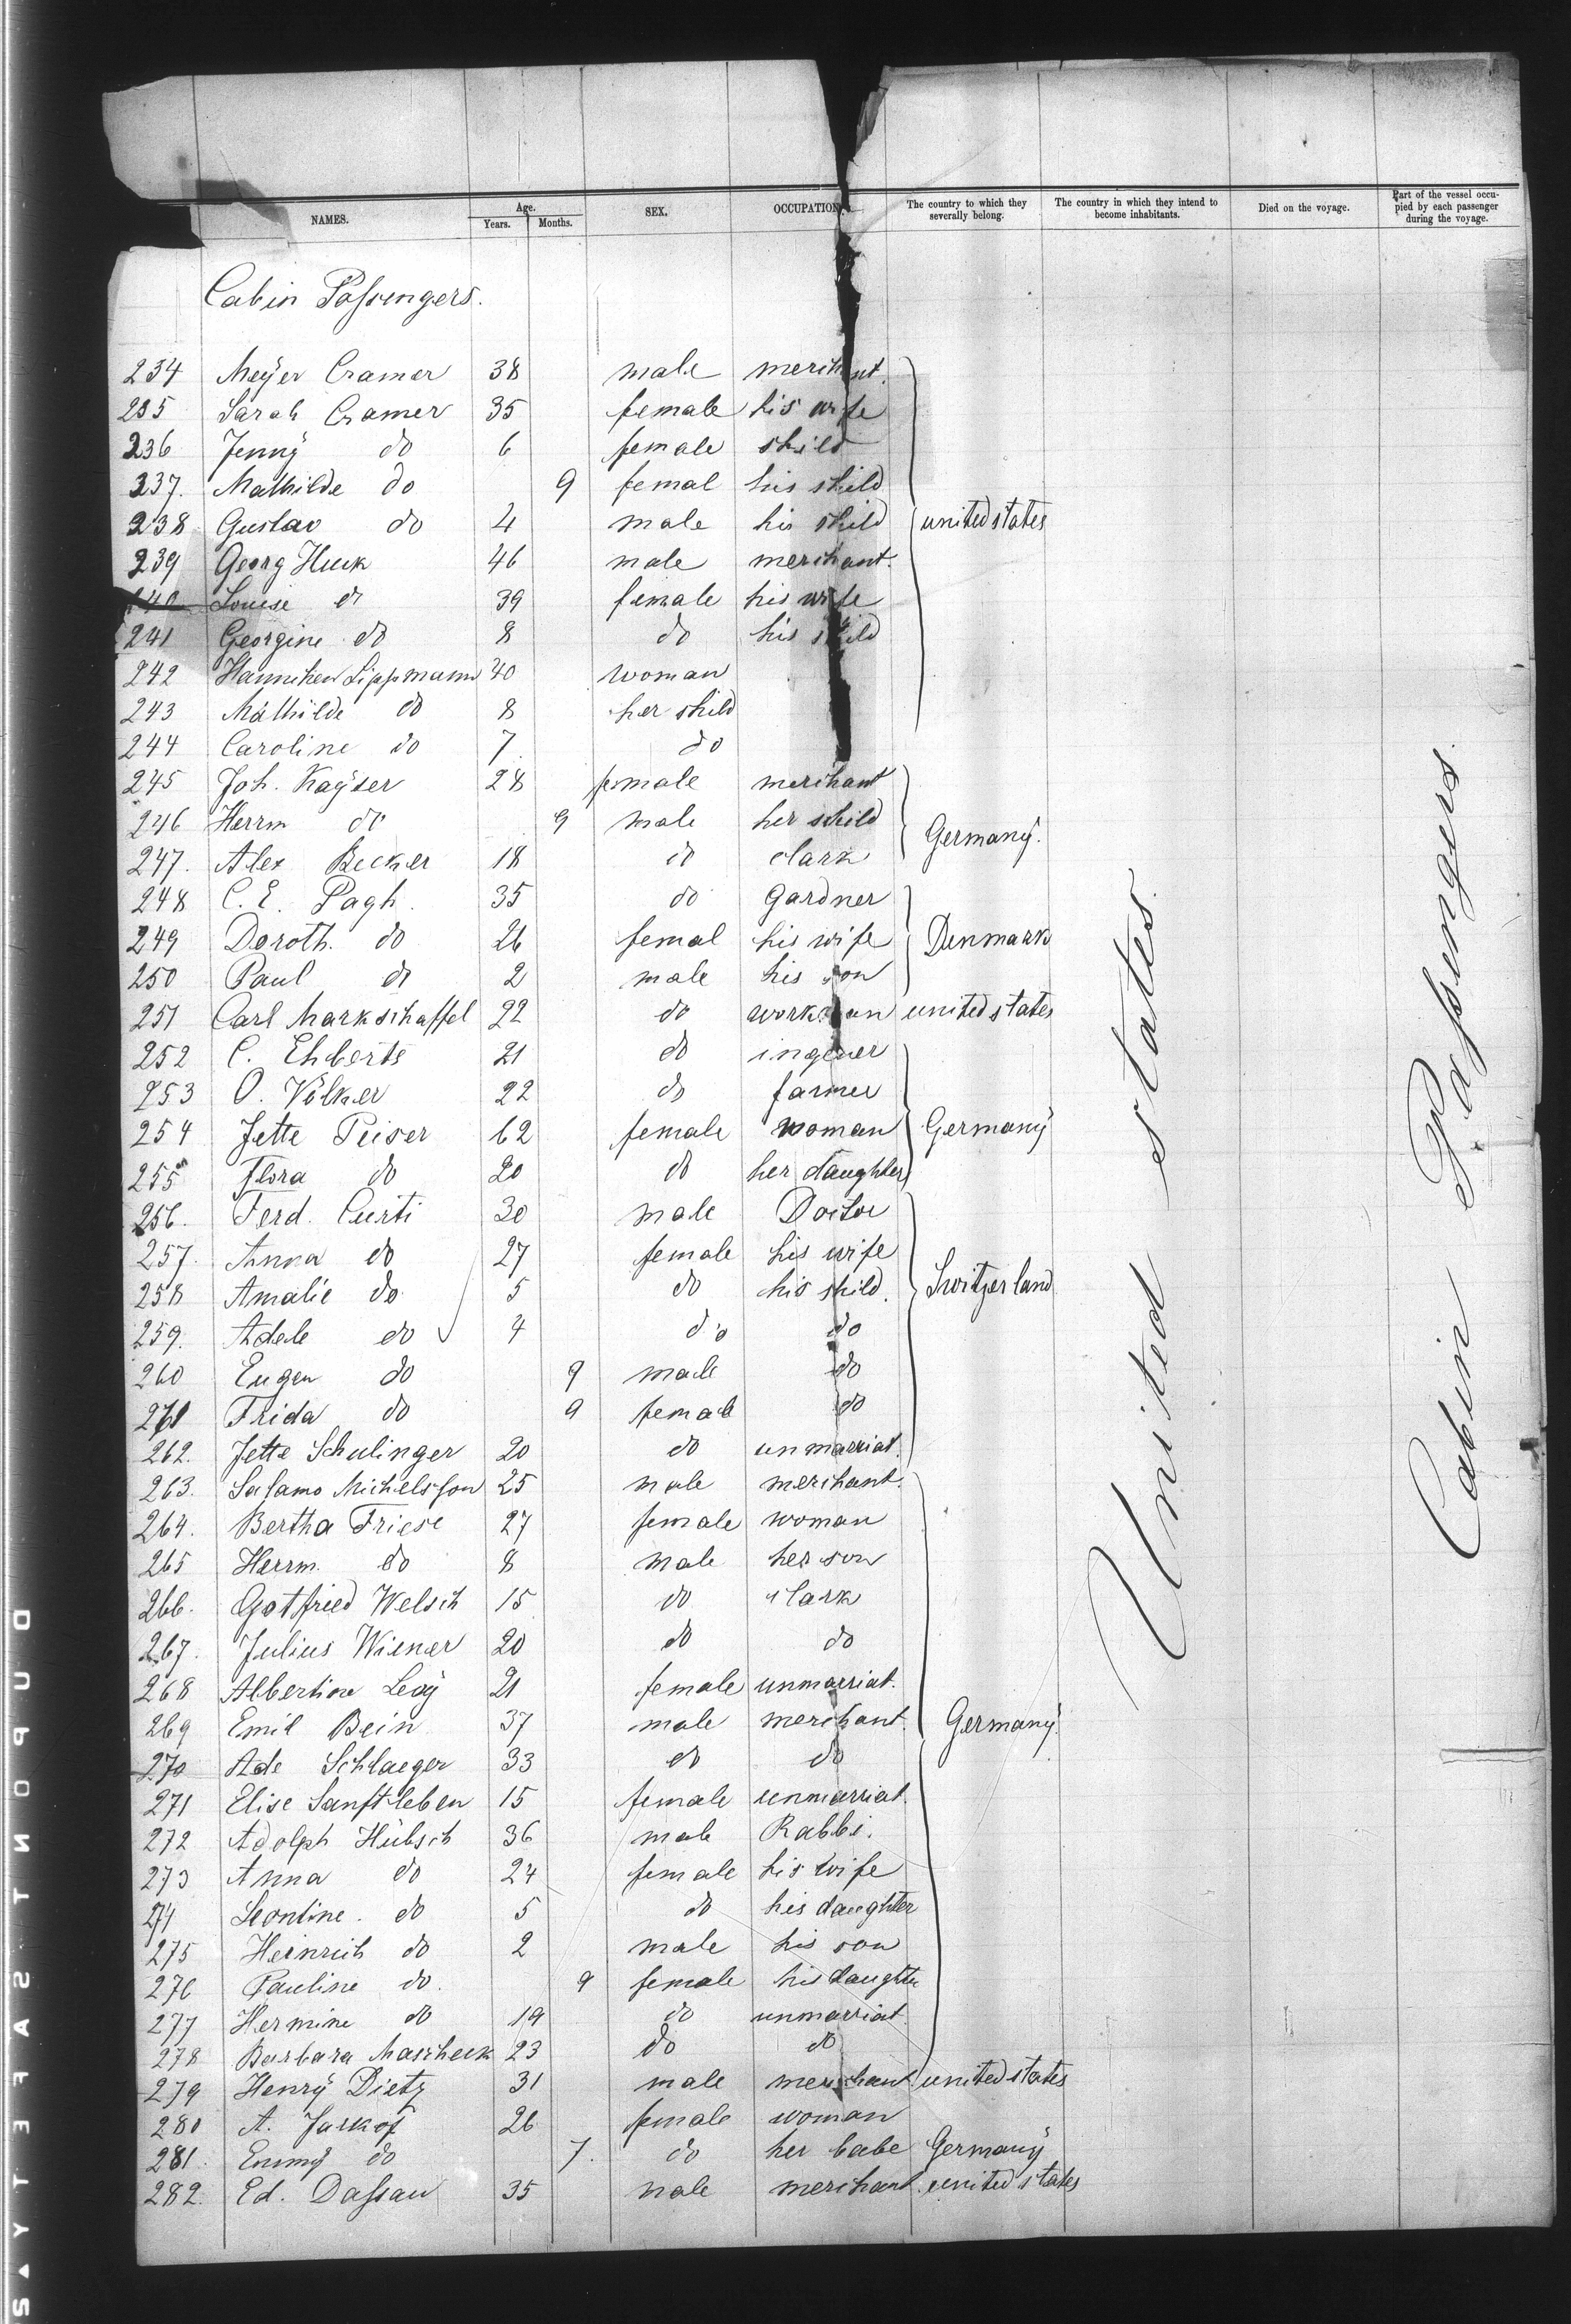 NAMES. Age. Years. Months. SEX. OCCUPATION. The country to which they severally belong. The country in which they intend to become inhabitants. Died on the voyage. Part of the vessel occupied by each passenger during the voyage.
Cabin Passengers.
234 Meÿer Cramer 38 male merchant.
235 Sarah Cramer 35 female his wife
236 Jennÿ do 6 female shild
237. Mathilde do 9 femal his shild
238 Gustav do 4 male his shild united states
239 Georg Huck 46 male merchant.
240 Louise do 39 female his wife
241 Georgine do 8 do his shild
242 Hannchen Lippmann 40 woman
243 Mathilde do 8 her shild
244 Caroline do 7 do
245 Joh. Kaÿser 28 female merchant
246 Herrm do 9 male her shild Germanÿ.
247. Alex Becker 18 do clark
248 C. E. Pagh. 35 do gardner
249 Doroth. do 26 femal his wife Denmark
250 Paul do 2 male his son
251 Carl Markschaffel 22 do workman united states
252 C. Ehberts 21 do ingener
253 O. Völker 22 do farmer
254 Jette Peiser 62 female woman Germanÿ
255 Flora do 20 do her daughter
256. Ferd. Curti 30 male Doctor
257. Anna do 27 female his wife
258 Amalie do 5 do his shild. Switzerland
259. Adele do 4 do do
260 Eugen do 9 male do
261 Frida do 9 female do
262. Jette Schulinger 20 do unmarriat.
263. Salamo Michelsson 25 male merchant.
264. Bertha Friese 27 female woman
265 Herrm. do 8 male her son
266. Gotfried Welsch 15 do clark
267. Julius Wiener 20 do do
268 Albertine Levÿ 21 female unmarriat.
269 Emil Bein 37 male merchant. Germanÿ.
270 Ade Schlaeger 33 do do
271 Elise Sanftleben 15 female unmarriat.
272 Adolph Hübsch 36 male Rabbi.
273 Anna do 24 female his wife
274 Leontine. do 5 do his daughter
275 Heinrich do 2 male his son
276 Pauline do. 9 female his daughter
277 Hermine do 19 do unmarriat
278 Barbara Mascheck 23 do do
279 Henrÿ Dietz 31 male merchant united states
280 A. Jarkof 26 female woman
281. Emmÿ do 7. do her babe Germanÿ
282. Ed. Dassau 35 male merchant. united states
United states.
Cabin Passengers.
DUPONT SAFETY S